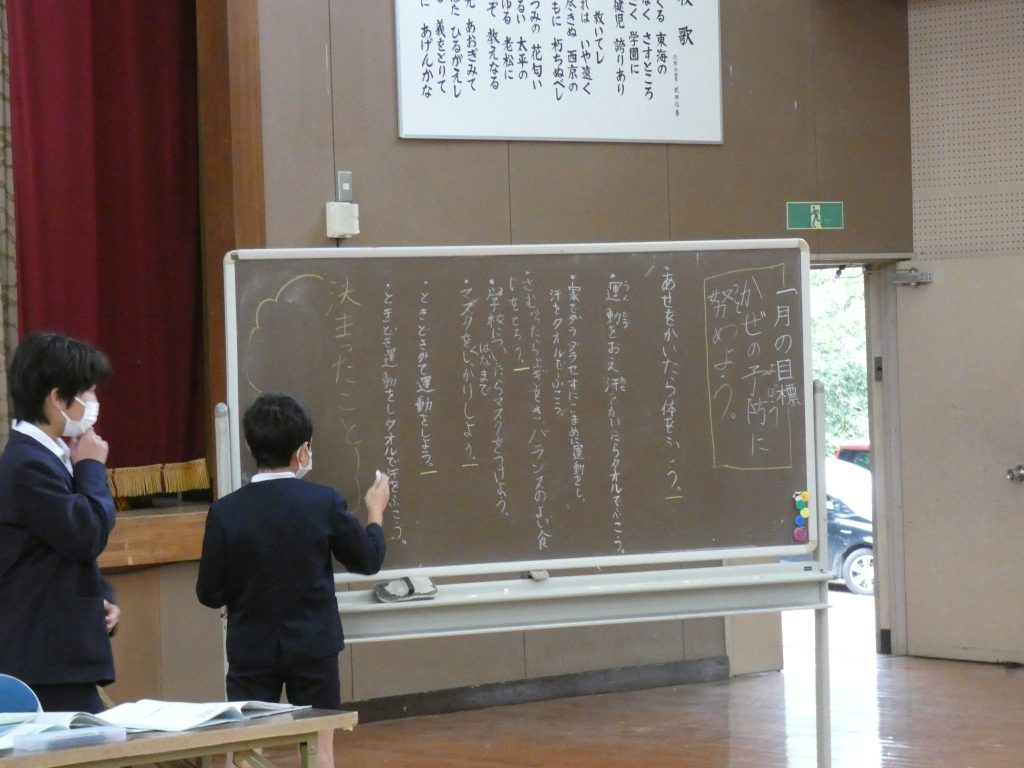 歌
くる 東海の
なく さすところ
ごく 学園に
健児 誇りあり
救いてし
れは いや遠く
尽きぬ 西京の
もに 朽ちぬべし
つみの 花匂い
るい 太平の
ゆる 老松に
ぞ 教えなる
光 あおぎみて
た ひるがえし
義をとりて
に あげんかな
一月の目標
かぜの予防に
努めよう。
・あせをかいたら体をふこう。
・運動をおえ汗をかいたらタオルでふこう。
・家でダラダラせずにこまめに運動をし、
汗をタオルでふこう。
・さむかったら上着をき、バランスのよい食
じをとろう。
・学校についたらマスクをつけよう。
はなまで
マスクをしっかりしよう。
運動をしよう。
・ときどき運動をしタオルで汗をふこう。
決まったこと